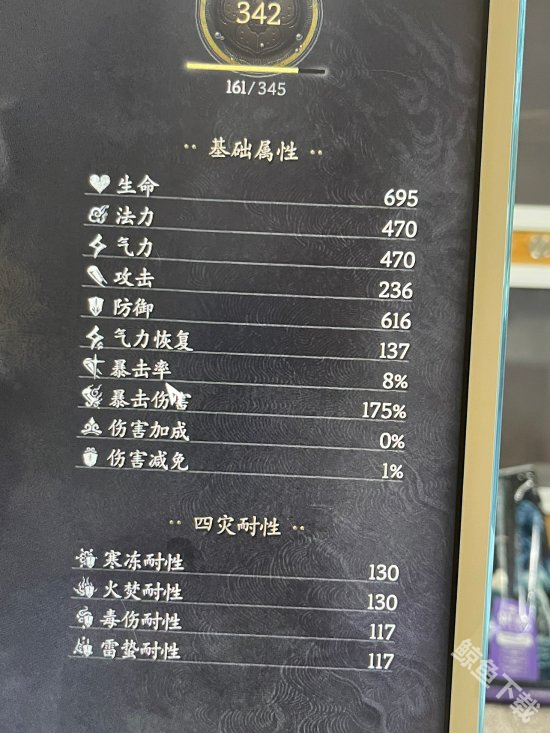 342
161/345
基础属性
生命 695
法力 470
气力 470
攻击 236
防御 616
气力恢复 137
暴击率 8%
暴击伤害 175%
伤害加成 0%
伤害减免 1%
四灾耐性
寒冻耐性 130
火焚耐性 130
毒伤耐性 117
雷蛰耐性 117
鲸鱼下载